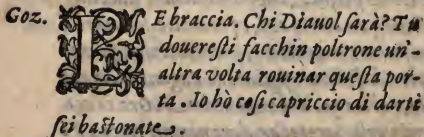 Goz. LE braccia. Chi Diauol ſarà? Tu
doucreſti facchin poltrone un'-
altra volta rouinar queſta por-
ta. Io hò coſi capriccio di darti
ſei baſtonate.